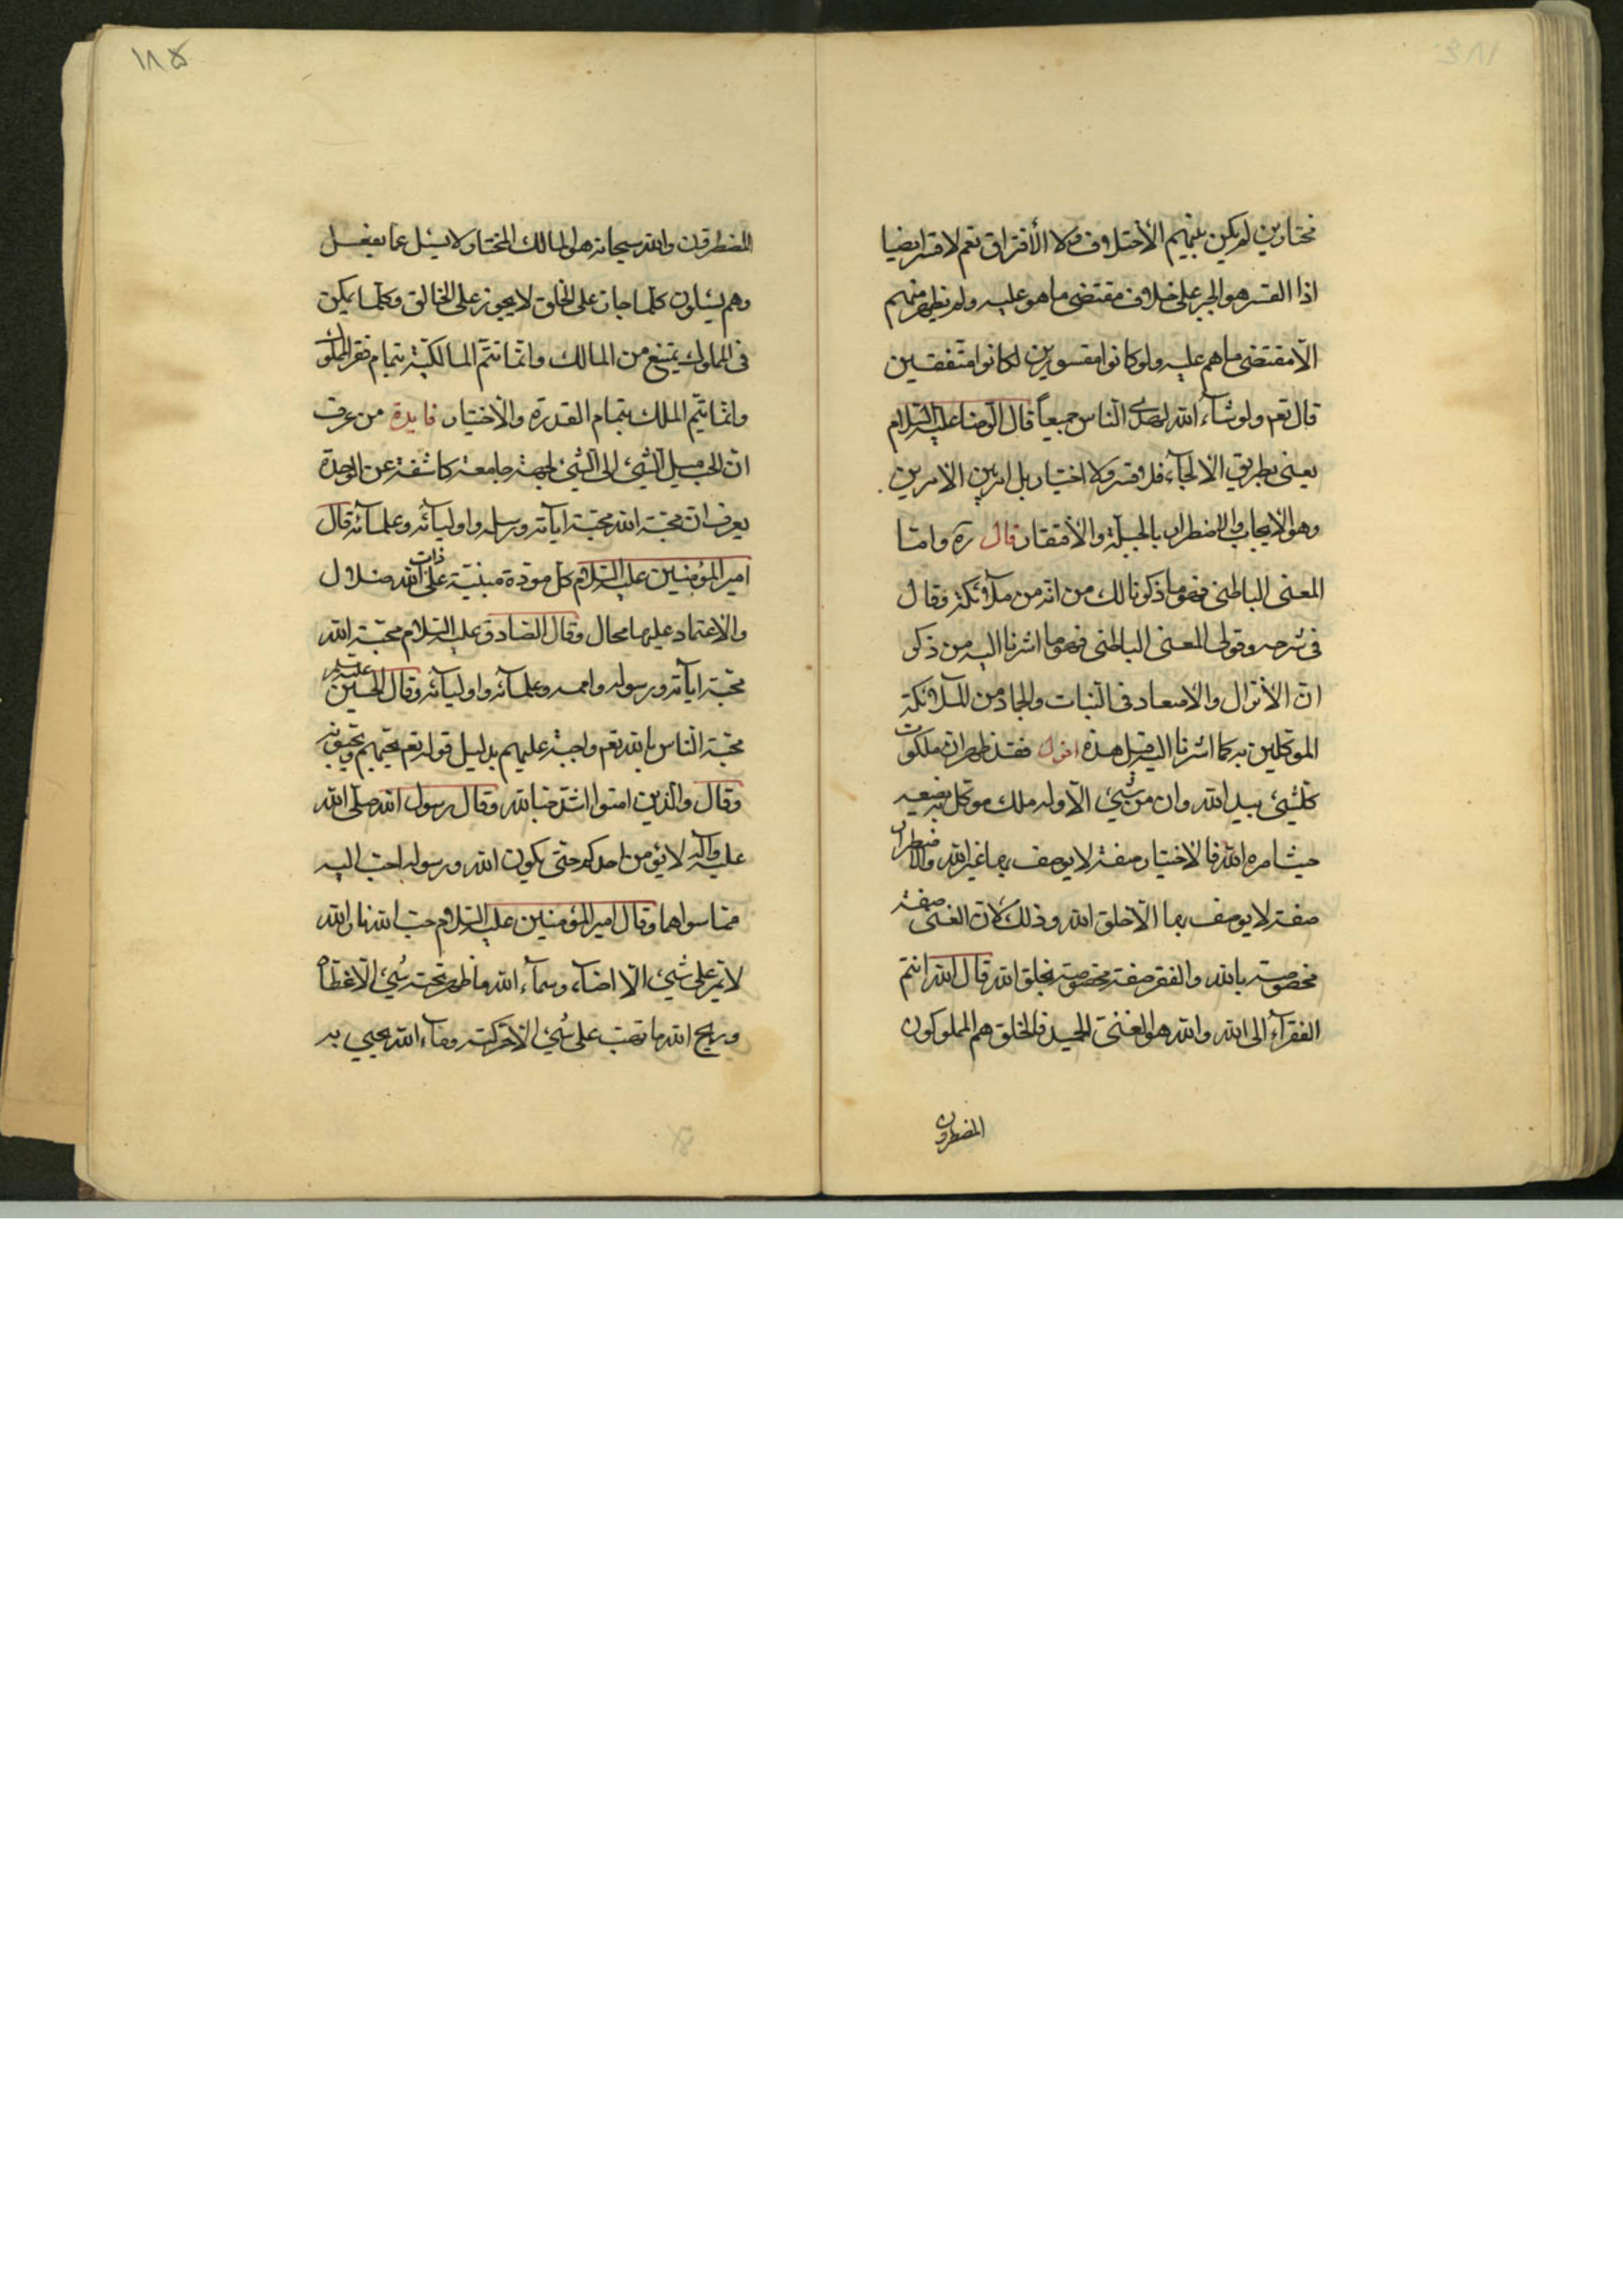 مختارين لم يكن بينهم الأختلاف ولا الأفتراق نعم لا قسر ايضا
اذا القسر هو الجبر على خلاف مقتضى ما هو عليه ولم يظهر منهم
الّا مقتضى ما هم عليه ولو كانوا مقسورين لكانوا متّفقين
قال تعم ولو شآء الله لهدى النّاس جميعاً قال الرّضا عليه السّلام
يعنى بطريق الالجآء فلا قسر ولا اختيار بل امر بين الامرين
وهو الايجاب والاضطرار بالجبلّة والأفتقار قال ره وامّا
المعنى الباطنى فهو ما ذكرنا لك من انّه من ملآئكة وقال
فى شرحه وقولى المعنى الباطنى فهو ما اشرنا اليه من ذكر
انّ الأنزال والاصعاد فى النّبات والجماد من الملآئكة
الموكّلين به كما اشرنا اليه قبل هذه اقول فقد ظهر انّ ملكوت
كلّشيئ بيد الله وان من شيئ الّا وله ملك موكل به يضعه
حيث امره الله فالاختيار صفة لا يوصف بها غير الله والاضطرار
صفة لا يوصف بها الّا خلق الله وذلك لانّ الغنى صفة
مخصوصة بالله والفقر صفة مخصوصة بخلق الله قال الله انتم
الفقرآء الى الله والله هو الغنىّ الحميد فالخلق هم المملوكون
المضطرون
١٨٥
المضطرون والله سبحانه هو المالك المختار ولا يسئل عمّا يفعل
وهم يسئلون كلّما جاز على الخلق لا يجوز على الخالق وكلّما يمكن
فى المملوك يمتنع من المالك وانّما تتمّ المالكيّة بتمام فقر المملوك
وانّما يتمّ الملك بتمام القدرة والأختيار فايدة من عرف
انّ الحب ميل الشّيئ الى الشّيئ لجهة جامعة كاشفة عن الوحدة
يعرف انّ محبّة الله محبّة اياته ورسله واوليآئه وعلمآئه قال
امير المؤمنين عليه السّلام كل مودة مبنيّة على ذات الله ضلال
والاعتماد عليها محال وقال الصّادق عليه السّلام محبّة الله
محبّة اياته ورسوله وعلمآئه واوليآئه وقال الحسين عليه
محبّة النّاس بالله تعم واجبة عليهم بدليل قوله تعم يحبّهم ويحبّونه
وقال والّذين امنوا اشدّ حبّا لله وقال رسول الله صلّى الله
عليه وآله لا يؤمن احدكم حتّى يكون الله ورسوله احبّ اليه
ممّا سواهما وقال امير المؤمنين عليه السّلام حبّ الله نار الله
لا تمرّ على شيئ الّا اضآء وسمآء الله ما ظهر تحته شيئ الّا غطّاه
وريح الله ما تهب على شيئ الّا حرّكته ومآء الله يحيي به